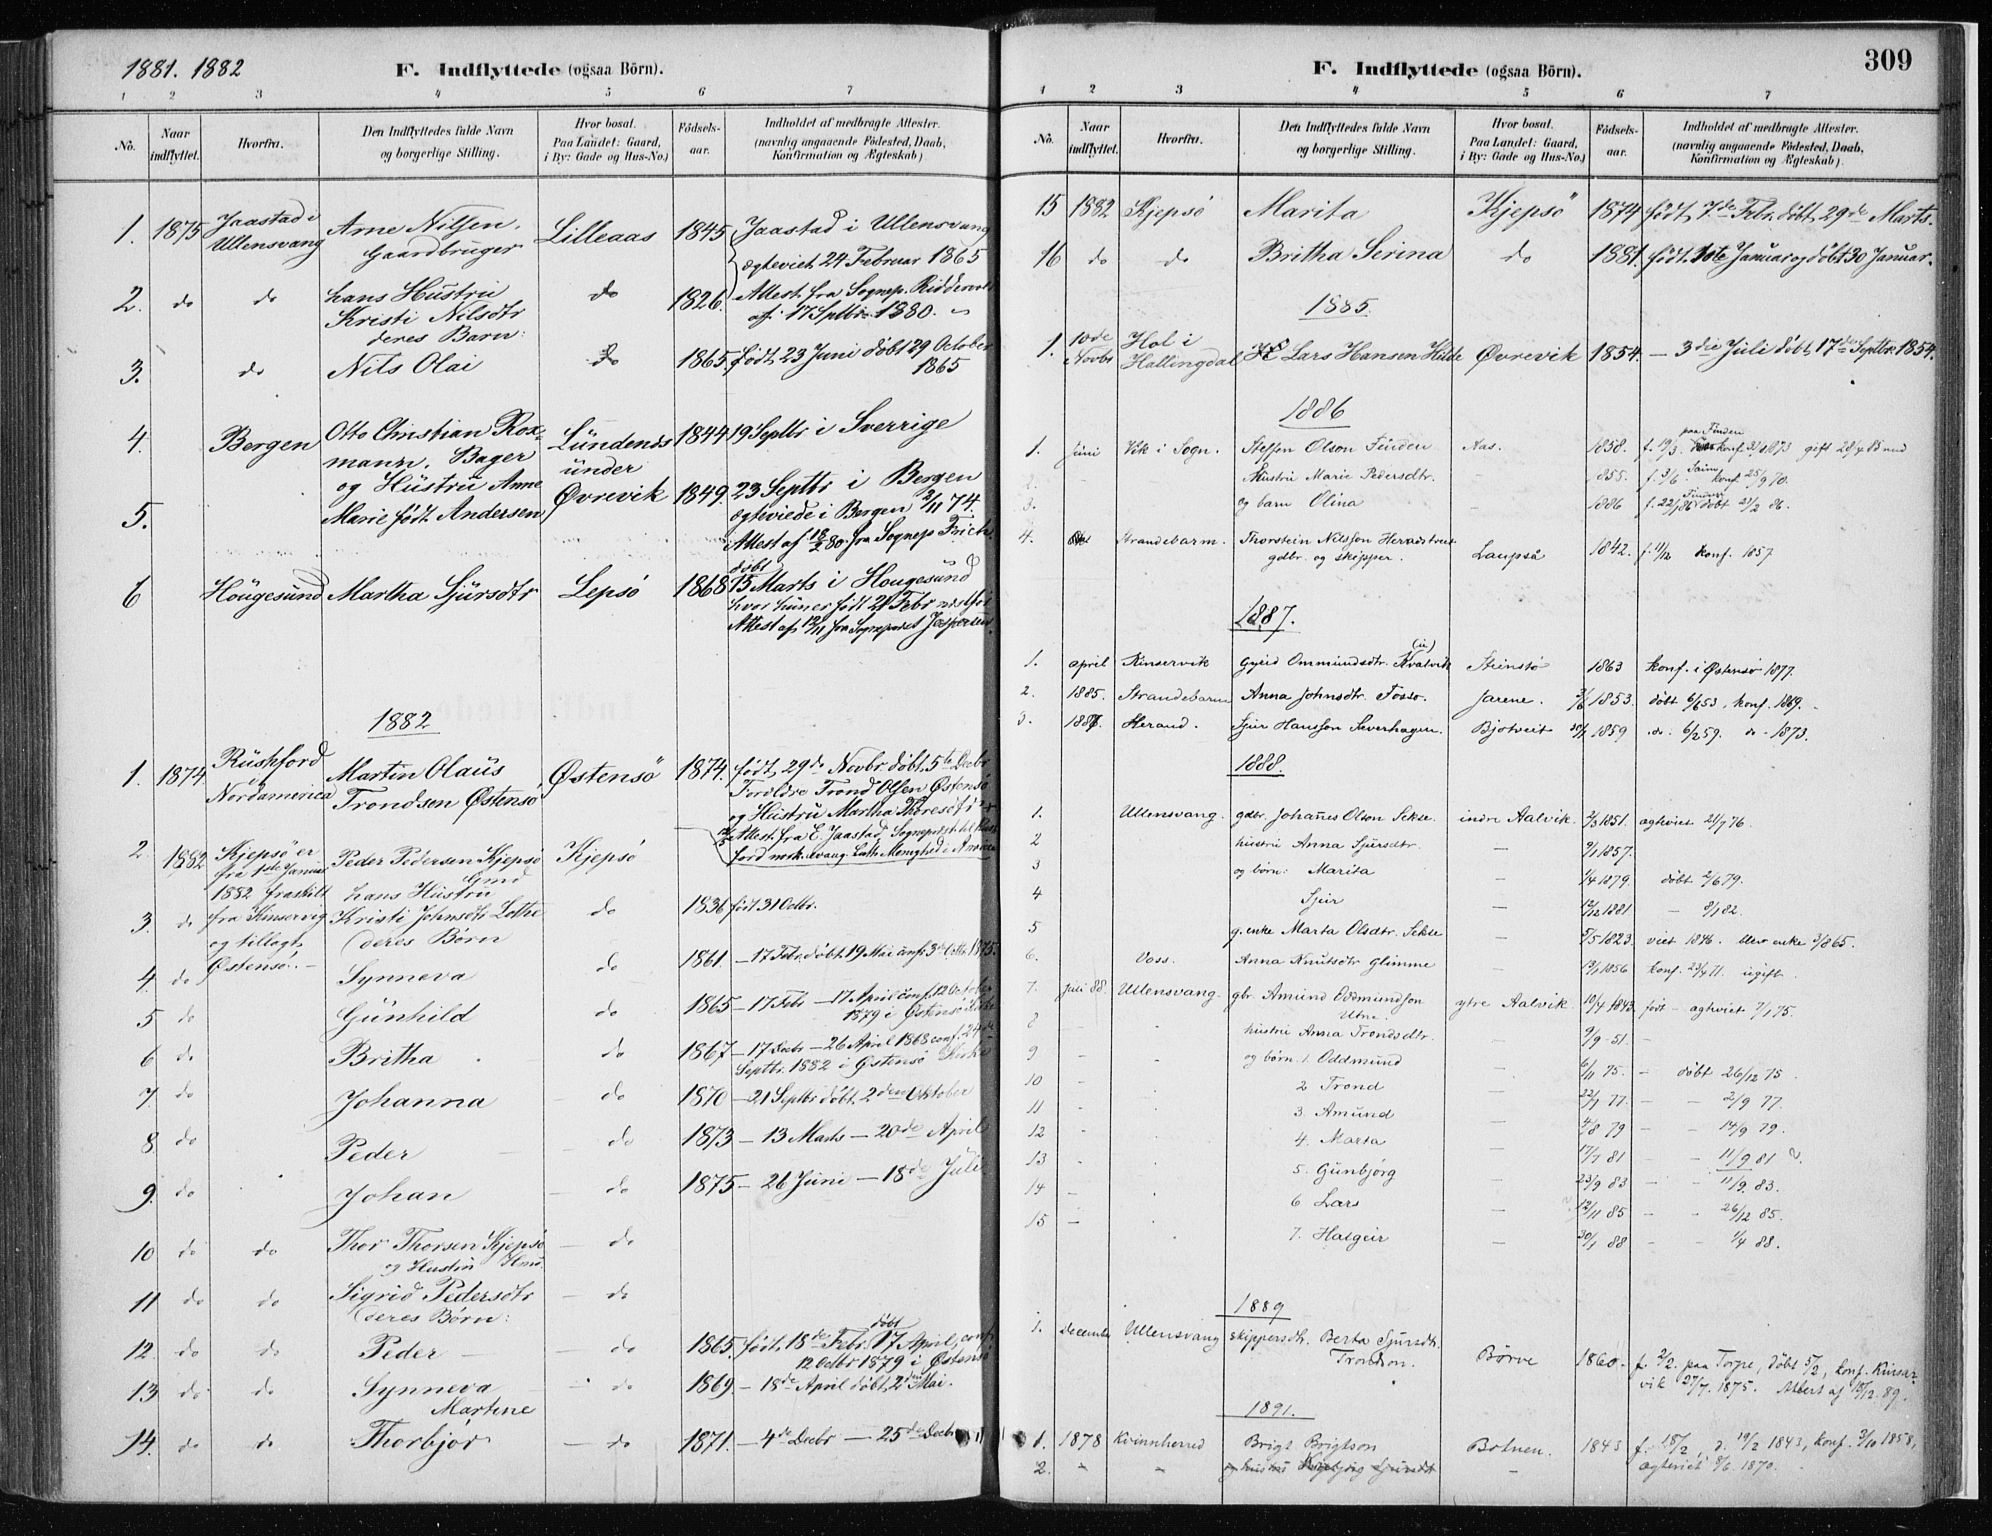 1881. 1882
F. Indflyttede (ogsaa Börn).
1 2 3 4 5 6 7
No.
Naar indflyttet.
Hvorfra.
Den Indflyttedes fulde Navn og borgerlige Stilling.
Hvor bosat. Paa Landet: Gaard, i By: Gade og Hus-No.)
Fødselsaar.
Indholdet af medbragte Attester. (navnlig angaaende Födested, Daab, Konfirmation og Ægteskab)
1. 1875 Jaastad i Ullensvang Arne Nilsen, Gaardbruger Lilleaas 1845 Jaastad i Ullensvang
ægteviet 24 Februar 1865
2. do do hans Hustru Kristi Nilsdtr do 1826. Attest fra Sognep. Riddervold
af 17 Septbr 1880.
deres Barn:
3. do Nils Olai do 1865. født 23 Juni døbt 29 October
1865
4. Bergen Otto Christian Roxmann, Bager Lündenes 1844 19 Septbr i Sverrige
og Hüstrü Anne ünder
5. Marie født Andersen Øvrevik 1849. 23 Septbr i Bergen
ægteviede i Bergen 2/11 74.
Attest af 18/2 80. fra Sognep. Frich.
døbt
6 Hougesund Martha Sjursdtr Lepsö 1868 15 Marts i Hougesünd
hvor hun er født 21 Febr
Attest af 12/11 fra Sognepræst Jespersen.
1882
1. 1874 Rüshford i Nordamerica Martin Olaüs Trondsen Østensö Østensö 1874. født 29de Novbr. døbt 5te Decbr
Forældre Trond Olsen Østensö
og Hüstrü Martha Thoresdtr
Attest fra E. Jaastad, Sognepræst til Rushford norsk evang. Luth. Menighed i America
2 1882 Kjepsö er Peder Pedersen Kjepsö Kjepsö
fra 1ste Januar Gmd
1882 fraskilt hans Hüstrü
3. do fra Kinservig Kristi Johnsdtr Lothe do 1836 født 31 Octbr.
og tillagt deres Børn
4. do Østensö. Synneva do 1861. - 17 Febr. døbt 19 Mai conf. 3de Octbr. 1875.
5 do Günhild do 1865 - 17 Febr - 17 April conf. 12 October
1879 i Østensö Kirke
6 do Britha do 1867 - 17 Decbr - 26 April 1868 conf. 24de
Septbr. 1882 i Østensö Kirke
7. do Johanna do 1870 - 21 Septbr døbt 2den Oktober
8. do Peder do 1873 - 13 Marts - 20de April
9. do Johan do 1875 - 26 Juni - 18de Juli
10 do do Thor Thorsen Kjepsö do
og Hustru Hmd.
11 do do Sigrid Pedersdtr do
deres Børn:
12. do do Peder do 1865. født 18de Febr. døbt 17 April, conf.
12 Octbr 1879 i Østensö
13 do do Synneva Martine do 1869. - 18de April døbt 2den Mai.
14. do do Thorbjør do 1871. - 4de Decbr - 25de Decbr
F. Indflyttede (ogsaa Börn).
309
1 2 3 4 5 6 7
No.
Naar indflyttet.
Hvorfra.
Den Indflyttedes fulde Navn og borgerlige Stilling.
Hvor bosat. Paa Landet: Gaard, i By: Gade og Hus-No.)
Födselsaar.
Indholdet af medbragte Attester. (navnlig angaaende Födested, Daab, Konfirmation og Ægteskab)
15 1882 Kjepsö Marita Kjepsö 1874 født 7de Febr. døbt 29de Marts.
16 do do Britha Serina do 1881. født 10te Januar og døbt 30 Januar.
1885.
1. 10de Novbr Hol i Hallingdal Lars Hansen Hilde Øvrevik 1854. - 3die Juli døbt 17de Septbr. 1854.
1886
1. Juni Vik i Sogn. Steffen Olson Finden Aas. 1858. f. 19/3 paa Finden konf. 1873 gift 28/4 85 med
2. Hustru Marie Pedersdtr. - 1855. f. 3/6 konf. 25/9 70.
3. og barn Olina - 1886 f. 22/1 86 Finden døbt 21/2 86.
4. Strandebarm. Thorstein Nilsson Heradstveit 1842. f. 11/12 konf. 1857
gdbr. og skipper. Laupså
1887.
1. april Kinservik Gyrid Ommundsdtr. Kvalvik (u) Steinstö 1863 konf. i Østensö 1877.
2. 1885. Strandebarm Anna Johnsdtr. Fosso. Jarene. 1853. døbt 6/1 53, konf. 1869.
3. 1887. Herand. Sjur Hansson Severhagen. Bjotveit 1859 do. 6/2 59. do - 1873.
1888.
1. Ullensvang. gdbr. Johanes Olson Sekse indre Aalvik. 2/3 1851. agteviet 21/7 76.
2 hustru Anna Sjursdtr. - 9/1 1857.
3 og børn: Marita - 1/4 1879. døbt 2/6 79.
4 Sjur - 12/12 1881 - 9/1 82.
5 g. enke Marta Olsdtr. Sekse - 5/5 1823. viet 1846. blev enke 3/8 65.
6. Voss. Anna Knutsdtr Glimme - 1856 konf. 23/4 71. ugift.
7. juli 88. Ullensvang. gbr. Amund Oddmundson Utne. ytre Aalvik. 10/4 1843. født - agteviet 7/1 75.
8 hustru Anna Trondsdtr. - 9/9 51. -
9 og børn. 1. Oddmund - 6/11 75. - døbt 26/12 75.
10 2 Trond - 22/7 77. - - 2/9 77.
11 3. Amund - 4/8 79 - - 14/9 79.
12 4. Marta - 17/7 81 - - 11/9 81
13 5. Gunbjørg - 23/9 83 - - 11/9. 83.
14 6 Lars - 12/11 85 - - 26/12 85.
15 7. Halgeir - 30/1 88 - - 1/4 88.
1889
1. december Ullensvang skippersdtr. Berta Sjursdtr. Trondson. Børve 1860. f. 2/2. paa Torpe, døbt 5/2, konf. Kinsarvik 27/7. 1875. Attest af 18/12. 89.
1891.
1. 1878 Kvinnherred Brigt Brigtson Botnen. 1843 f. 18/2, d. 19/2 1843, konf. 3/10 1858,
2. - - og hustru Sjursdtr - agteviet 8/6. 1870.